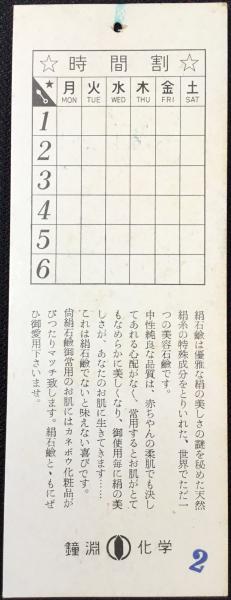 ☆時間割☆
月 火 水 木 金 土
MON TUE WED THU FRI SAT
1
2
3
4
5
6
絹石鹼は優雅な絹の美しさの謎を秘めた天然
絹糸の特殊成分をとりいれた、世界でただ一
つの美容石鹼です。
中性純良な品質は、赤ちゃんの柔肌でも決し
てあれる心配がなく、常用するとお肌がとて
もなめらかに美しくなり、御使用毎に絹の美
しさが、あなたのお肌に生きてきます……
これは絹石鹼でないと味えない喜びです。
尙絹石鹼御常用のお肌にはカネボウ化粧品が
ぴつたりマッチ致します。絹石鹼と、もにぜ
ひ御愛用下さいませ。
鐘淵 化学
2